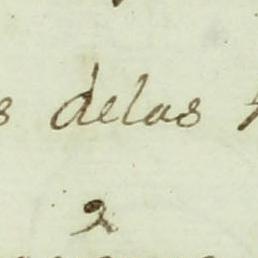 delas
2